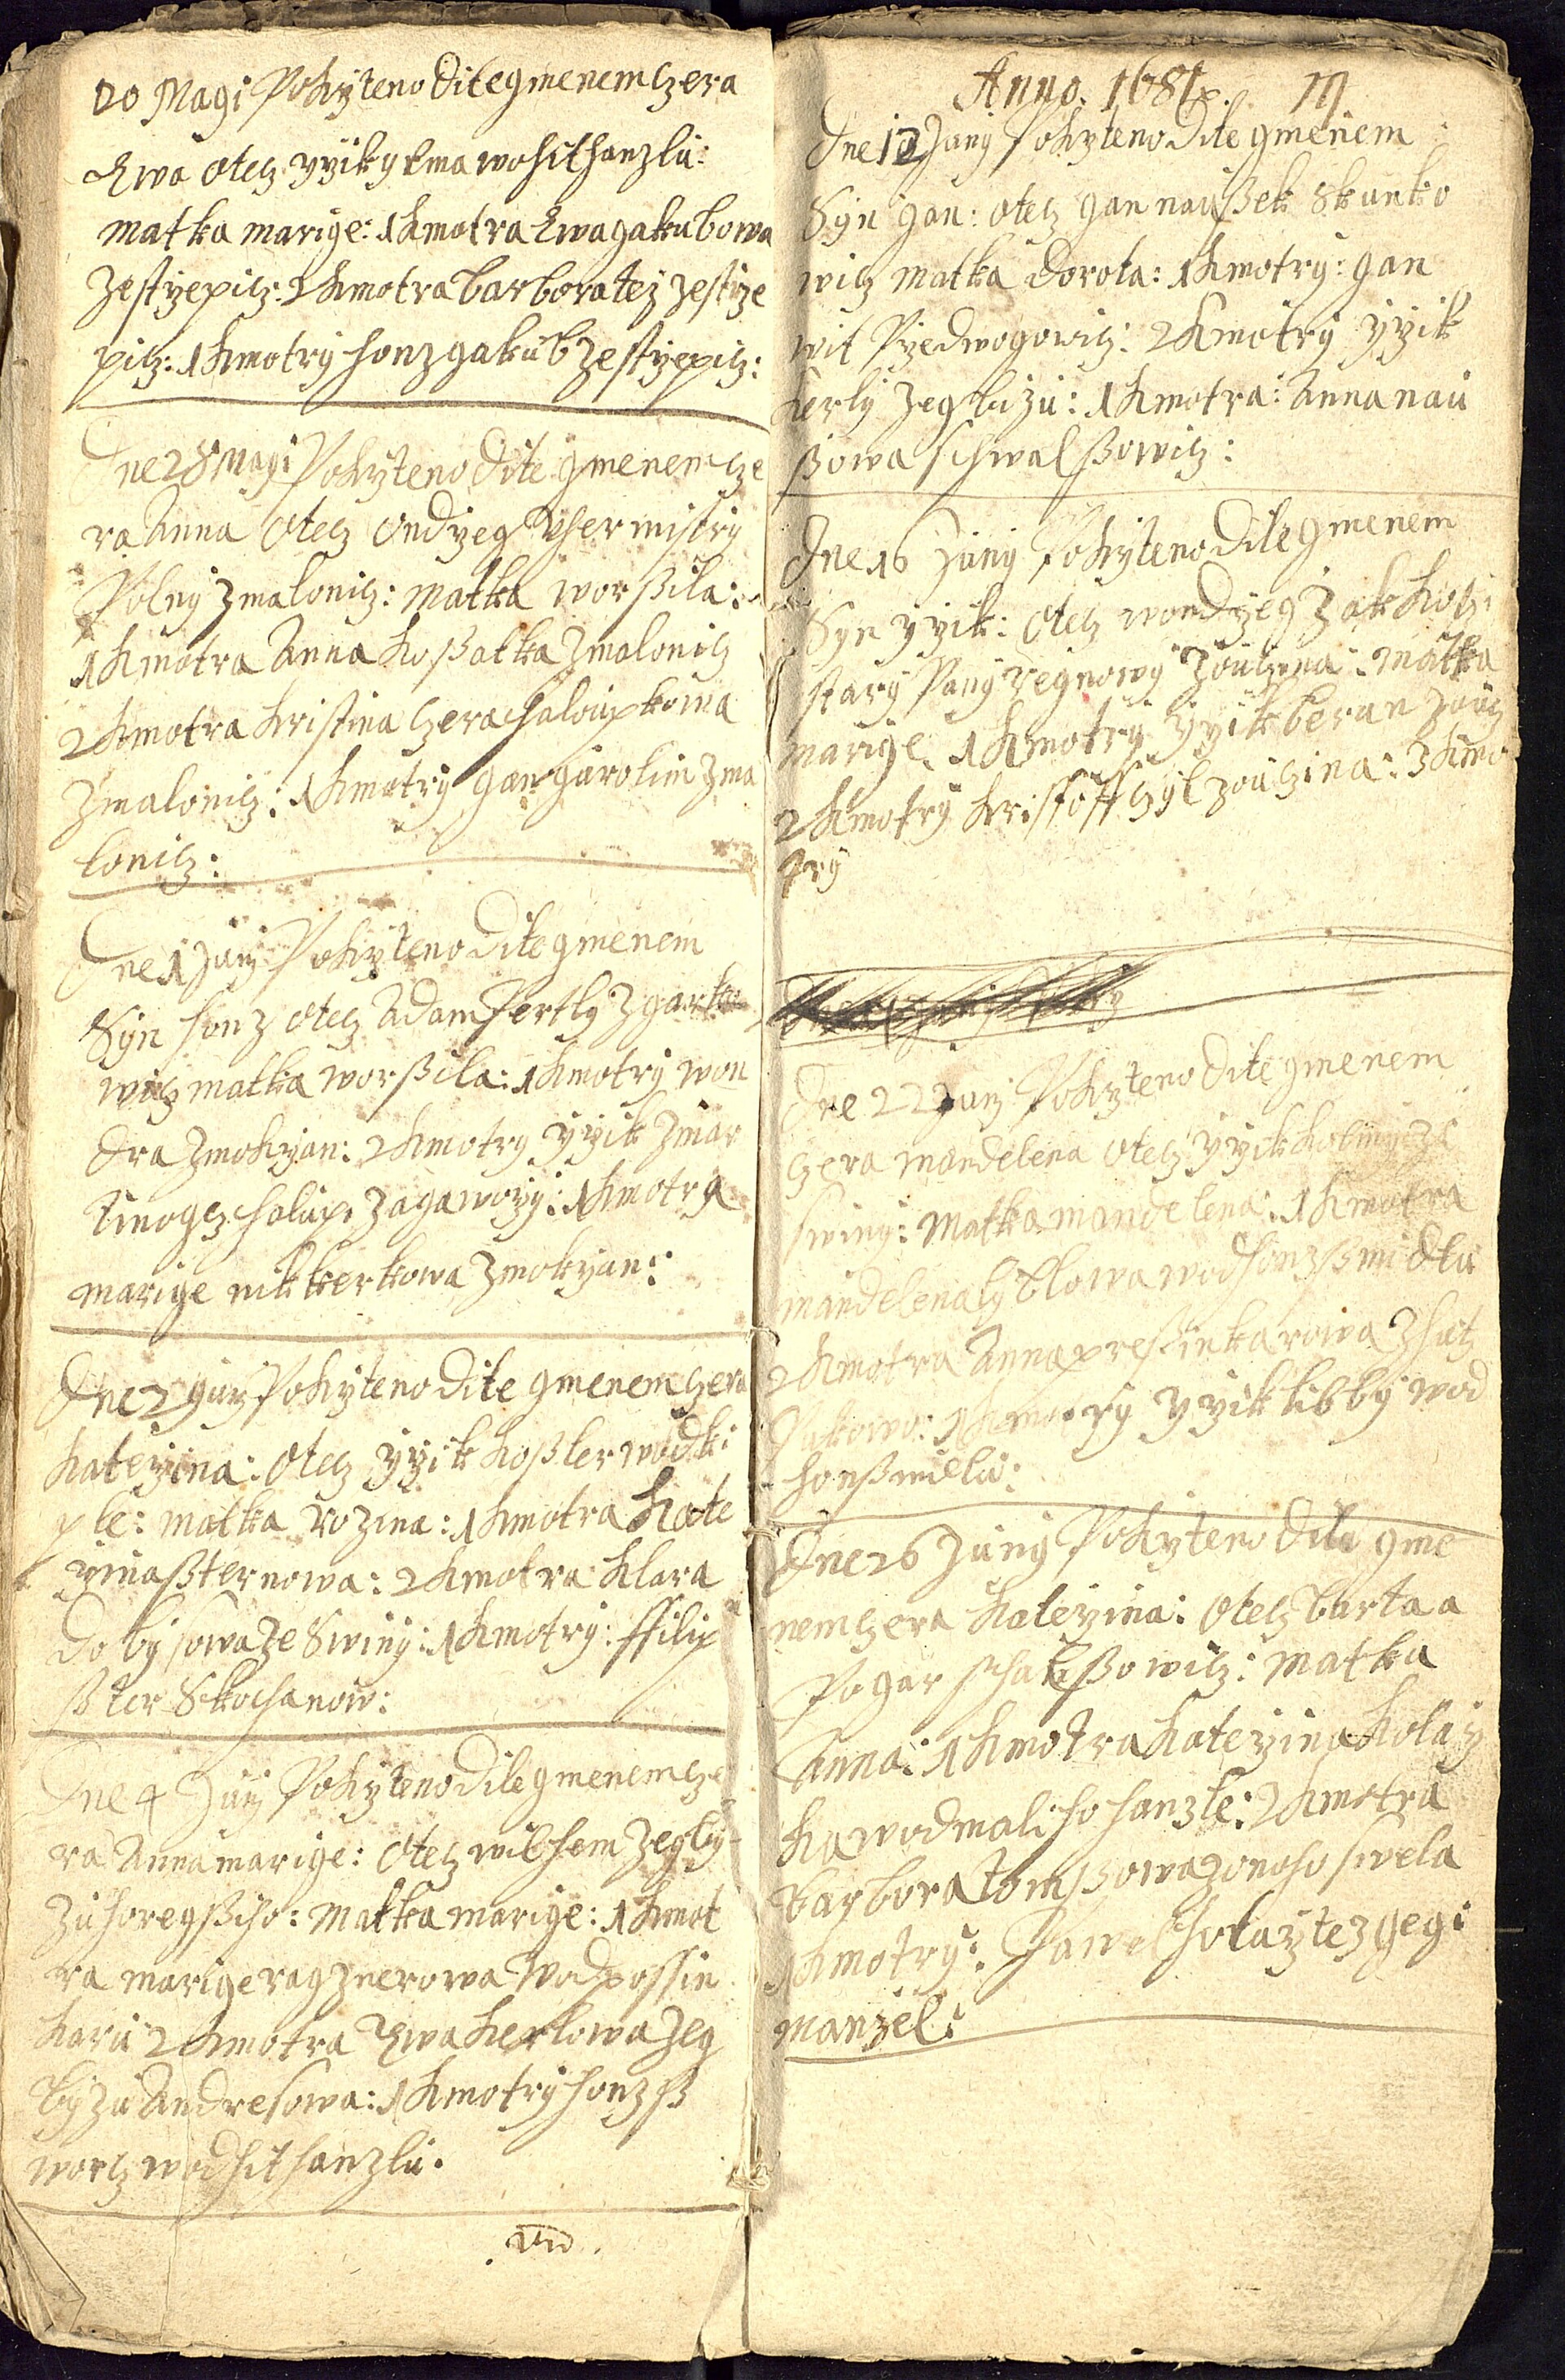 20 Magi Pokrzteno dite gmenem czera
Ewa otecz yrzik ykma wohit hanzlu:
matka marige: 1 kmotra Ewa gakubowa
ze strzepicz: 2 kmotra barbora tez ze strze
picz: 1 kmotrŷ honz gakub ze strzepicz:
Dne 28 Magi Pokrzteno dite gmenem cze
ra Anna otecz ondrzeg
Polnŷ z malonicz: matka worßila:
1 kmotra Anna koßatka z malonicz
2 kmotra kristina czera chalaupkowa
z malonicz: 1 kmotrŷ gan garolim z ma
lonicz:
Dne 1 Junŷ Pokrzteno dite gmenem
Sŷn honz otecz Adam Pertlŷ z garko
wicz matka worßila: 1 kmotrŷ won
dra z mokrzan: 2 kmotrŷ yrzik z mar
tinogcz chalup. z Jaworzŷ: 1 kmotra
marige nikkerkowa z mokrzan:
Dne 2 Junŷ Pokrzteno dite gmenem czera
katerzina: otecz yrzik koßler wodki
ple: matka rozina: 1 kmotra kate
rzina ßternowa: 2 kmotra klara
dobŷsowa ze Swinŷ: 1 kmotrŷ: ffilip
ßter S kochanow:
Dne 4 Junŷ Pokrzteno dite gmenem cze
ra Anna marige: otecz wilhem ze gbŷ
zu horegßiho: matka marige: 1 kmot
ra marige ragznerowa wod possin
karu 2 kmotra Ewa kerlowa ze g
bŷzu Andresowa: 1 kmotrŷ honz ß
worcz wod hit hanzlu.
Anno. 1681. 19
Dne 12 Junŷ Pokrzteno dite gmenem
Sŷn gan: otecz gan naußek S kunko
wicz matka dorota: 1 kmotrŷ: gan
wit Przedwogowicz: 2 kmotrŷ yrzik
kerlŷ ze gbizu: 1 kmotra: Anna nau
ßowa s chwalßowicz:
Dne 16 Junŷ Pokrzteno dite gmenem
Sŷn yrzik: otecz wondrzeg zak koczi
starŷ Panŷ regnowŷ z auczina: matka
marige. 1 kmotrŷ yrzik beran z aucz
2 kmotrŷ kristoff czŷl z auczina: 3 kmo
trŷ
Dne 22 Junŷ Pokrzteno dite gmenem
czera mandelena otecz yrzik kolinŷ ze
swinŷ: Matka mandelena: 1 kmotra
mandelena wod honzßmidlu
2 kmotra Anna preßinkarowa z hut
Jakowo: 1 kmotrŷ yrzik libbŷ wod
honßmidlu:
Dne 26 Junŷ Pokrzteno dite gme
nem czera katerzina: otecz barta a
Pogar s chalßowicz: matka
Anna: 1 kmotra katerzina kolarz
ka wod maliho hanzle: 2 kmotra
barbora tomßowa z onoho swela
1 kmotrŷ: Pawel holarz tez gegi
manzel: